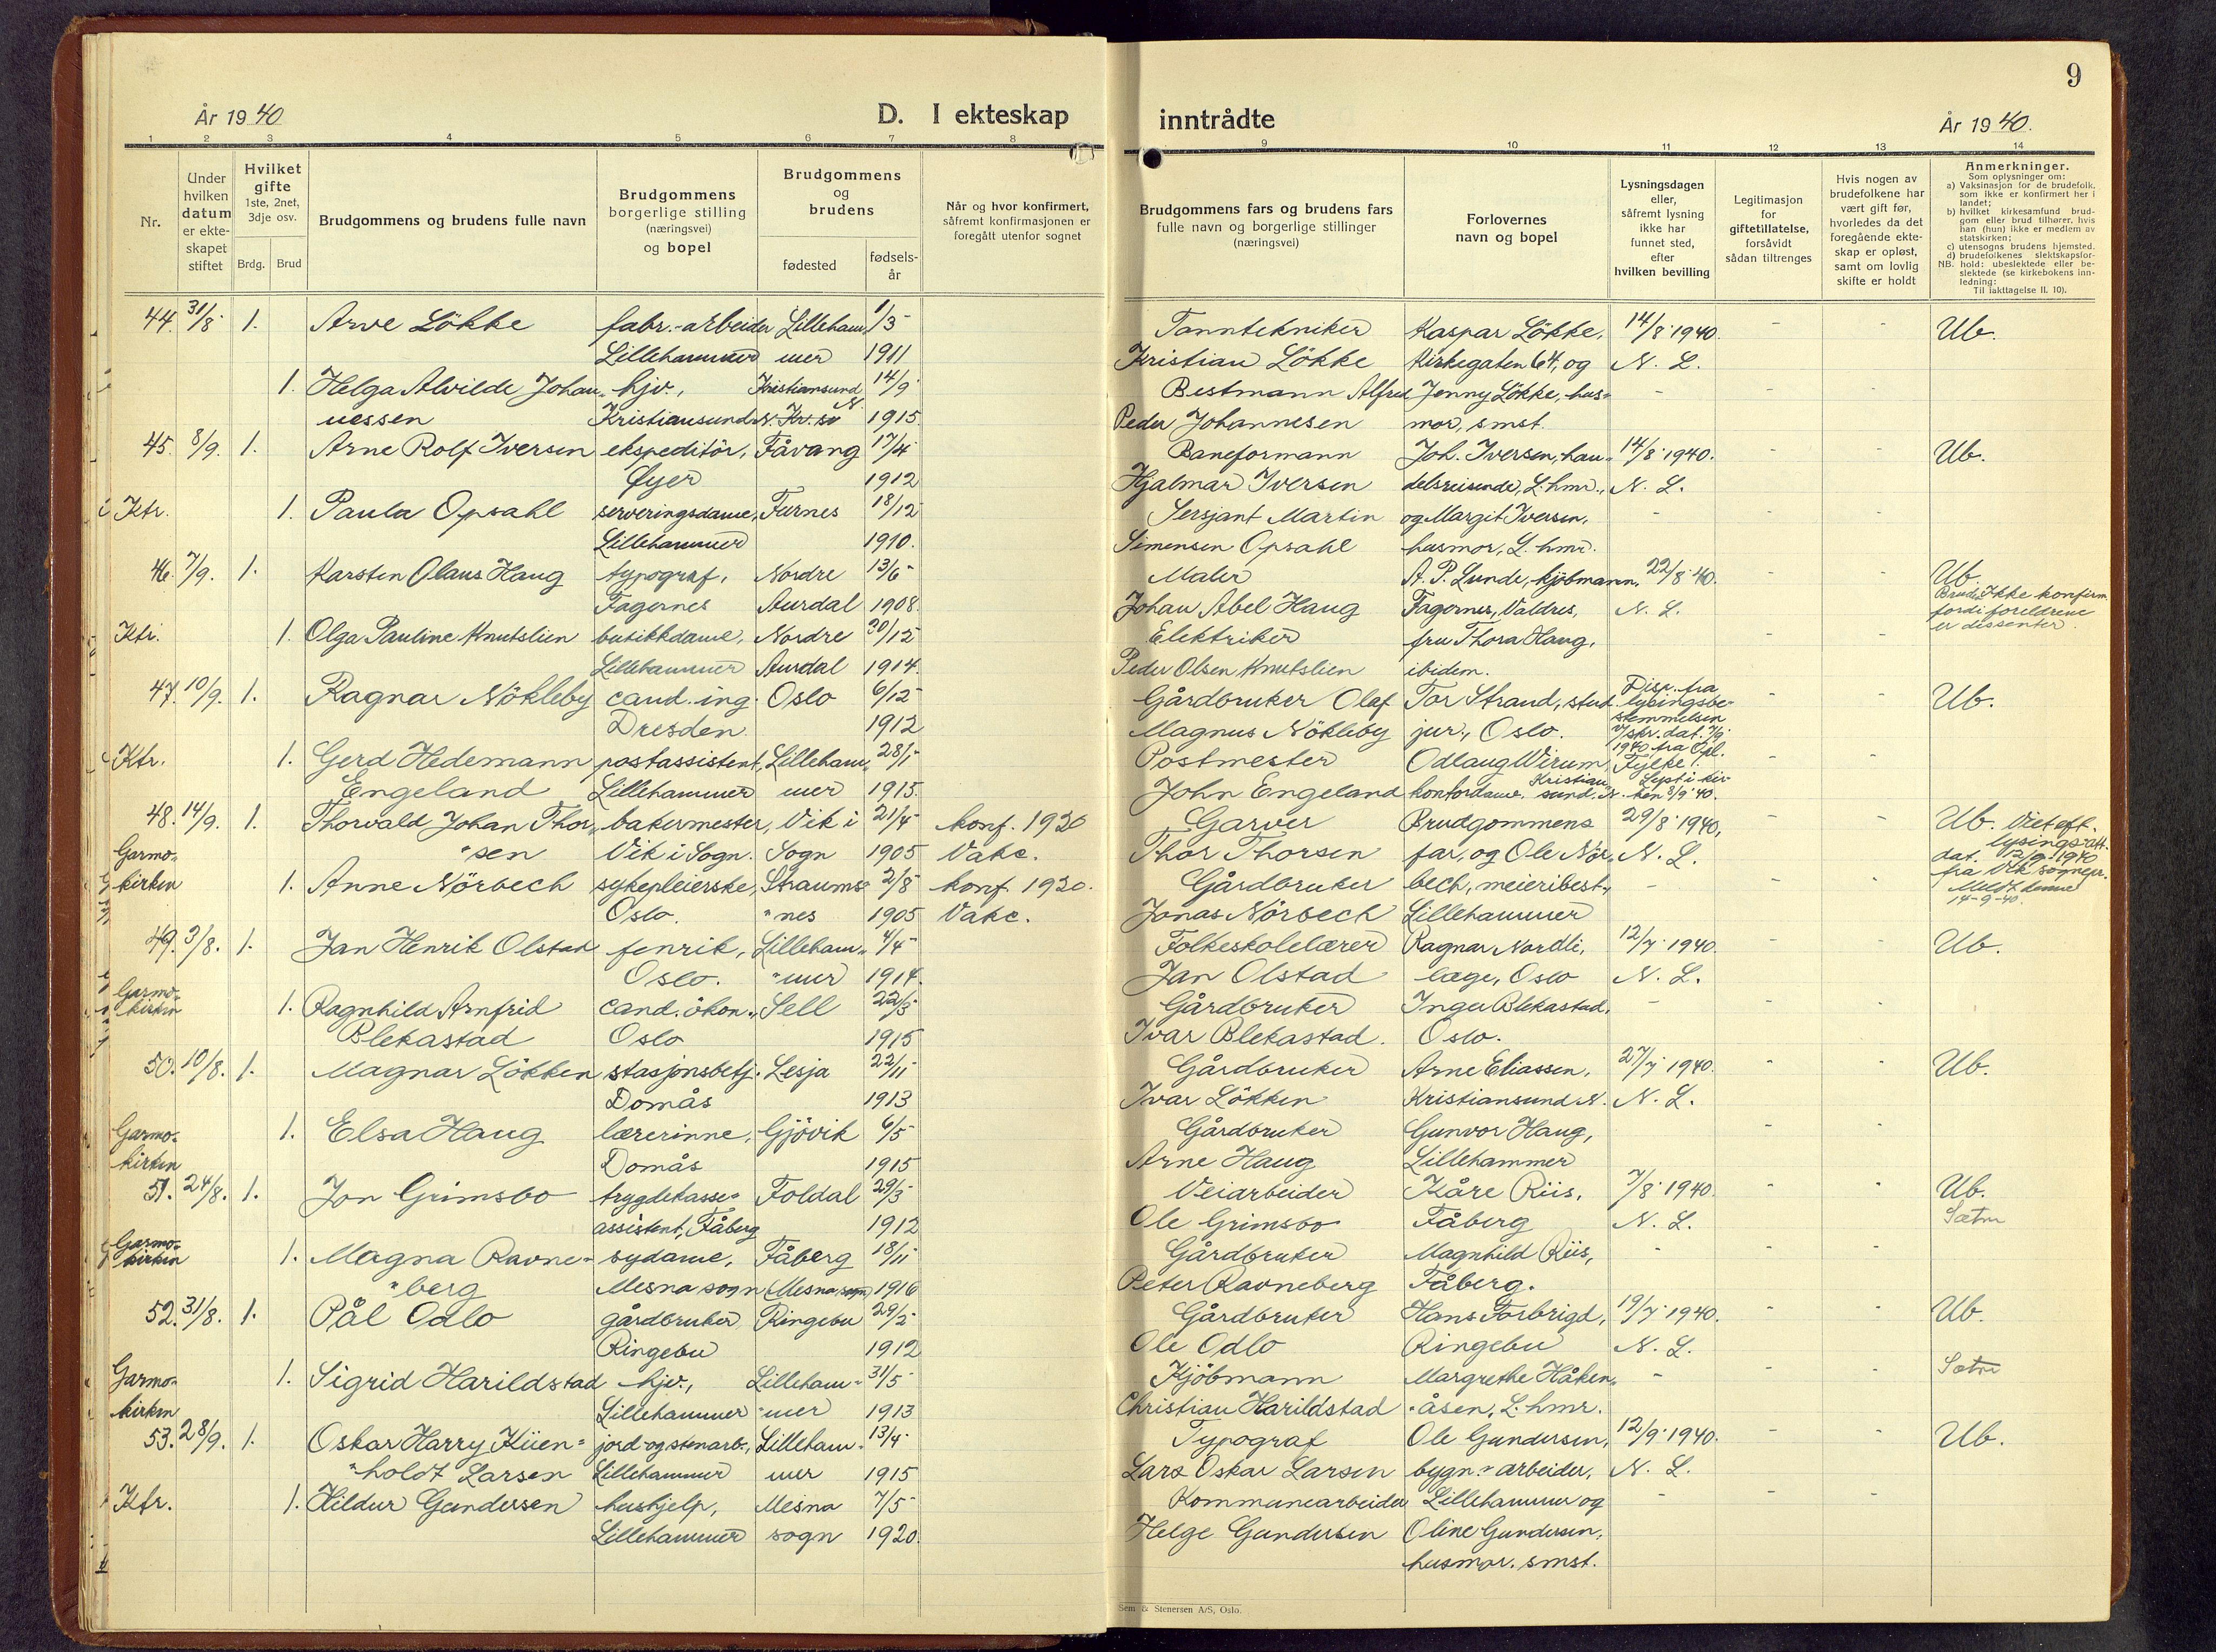 År 1940
D. I ekteskap
1 2 3 4 5 6 7 8
Nr.
Under
hvilken
datum
er ekte-
skapet
stiftet
Hvilket
gifte
1ste, 2net,
3dje osv.
Brdg. Brud
Brudgommens og brudens fulle navn
Brudgommens
borgerlige stilling
(næringsvei)
og bopel
Brudgommens
og
brudens
fødested
fødsels-
år
Når og hvor konfirmert,
såfremt konfirmasjonen er
foregått utenfor sognet
44. 31/8 1. Arve Lökke fabr.-arbeider Lilleham- 1/3
Lillehammer mer 1911
1. Helga Alvilde Johan- hjv., Kristiansund 14/9
nessen Kristiansund N. 1915
45. 8/9. 1. Arne Rolf Iversen ekspeditör, Fåvang 17/4
Øyer 1912
Ktr. 1. Paula Opsahl serveringsdame, Furnes 18/12
Lillehammer 1910.
46. 7/9. 1. Karsten Olaus Haug typograf, Nordre 13/6
Fagernes Aurdal 1908.
Ktr. 1. Olga Pauline Knutslien butikkdame, Nordre 30/12
Lillehammer Aurdal 1914.
47. 10/9. 1. Ragnar Nökleby cand. ing. Oslo 6/12
Dresden. 1912
Ktr. 1. Gerd Hedemann postassistent, Lilleham- 28/1
Engeland Lillehammer mer 1915.
48. 14/9. 1. Thorvald Johan Thor- bakermester, Vik i 21/4 konf. 1920
Garmo-
"sen Vik i Sogn. Sogn 1905 Vake.
kirken 1. Anne Nörbech sykepleierske, Straums- 2/8 konf. 1920.
Oslo. "nes 1905 Vake.
49. 3/8. 1. Jan Henrik Olstad fenrik, Lilleham- 4/4
Oslo. "mer 1914.
Garmo-
kirken 1. Ragnhild Arnfrid cand. ökon., Sell 22/3
Blekastad Oslo 1915
50. 10/8. 1. Magnar Lökken stasjonsbetj. Lesja 22/11
Domås 1913
Garmo- 1. Elsa Haug lærerinne, Gjövik 6/5
kirken Domås 1915
51. 24/8. 1. Jon Grimsbo trygdekasse- Foldal 29/3
assistent, Fåberg 1912
Garmo-
kirken 1. Magna Ravne- sydame, Fåberg 18/11
"berg Mesna sogn (Mesna sogn) 1916
52. 31/8. 1. Pål Odlo gårdbruker Ringebu 29/2
Ringebu 1912
Garmo- 1. Sigrid Harildstad hjv., Lilleham- 31/5
kirken Lillehammer "mer 1913
53. 28/9. 1. Oskar Harry Küen- jord-og stenarb., Lilleham- 13/4
"holdt Larsen Lillehammer mer 1915
Ktr. 1. Hildur Gundersen hushjelp, Mesna 7/5
Lillehammer sogn 1920.
9
inntrådte
År 1940.
9 10 11 12 13 14
Brudgommens fars og brudens fars
fulle navn og borgerlige stillinger
(næringsvei)
Forlovernes
navn og bopel
Lysningsdagen
eller,
såfremt lysning
ikke har
funnet sted,
efter
hvilken bevilling
Legitimasjon
for
giftetillatelse,
forsåvidt
sådan tiltrenges
Hvis nogen av
brudefolkene har
vært gift før,
hvorledes da det
foregående ekte-
skap er opløst,
samt om lovlig
skifte er holdt
Anmerkninger.
Som oplysninger om:
a) Vaksinasjon for de brudefolk,
som ikke er konfirmert her i
landet;
b) hvilket kirkesamfund brud-
gom eller brud tilhører, hvis
han (hun) ikke er medlem av
statskirken;
c) utensogns brudens hjemsted.
d) brudefolkenes slektskapsfor-
NB. hold: ubeslektede eller be-
slektede (se kirkebokens inn-
ledning:
Til iakttagelse II. 10).
Tanntekniker Kaspar Lökke, 14/8 1940. - - Ub.
Kristian Lökke Kirkegaten 64, og N. L.
Bestmann Alfred Jenny Lökke, hus- - - -
Peder Johannesen mor, smst.
Baneformann Joh. Iversen, han- 14/8 1940. - - Ub.
Hjalmar Iversen delsreisende, L.hmr., N. L.
Sersjant Martin og Margit Iversen, - - -
Simensen Opsahl husmor, L.hmr.
Maler A. P. Lunde, kjöbmann, 22/8 40. - - Ub.
Johan Abel Haug Fagernes, Valdres, N. L. Brud: Ikke konfirm.
fordi foreldrene
Elektriker fru Thora Haug, - - er dissenter.
Peder Olsen Knutslien ibidem.
Gårdbruker Olaf Tor Strand, stud. Disp. fra - - Ub.
lysingsbe-
Magnus Nökleby jur., Oslo. stemmelsen
v/skr. dat. 7/9
Postmester Odlaug Wirum, 1940 fra Opl. - -
Fylke.
John Engeland kontordame, Kristiansund N. Lyst i kir-
ken 8/9 40.
Garver Brudgommens 29/8 1940, - - Ub. Viet eft.
Thor Thorsen far, og Ole Nör- N. L. lysingsatt.
dat. 12/9 1940
Gårdbruker bech, meieribest., - fra Vik sognepr.
Meldt denne
Jonas Nörbech Lillehammer 14-9-40.
Folkeskolelærer Ragnar Nordli, 12/7 1940. - - Ub.
Jan Olstad læge, Oslo N. L.
Gårdbruker Inga Blekastad, - - -
Ivar Blekastad. Oslo.
Gårdbruker Arne Eliassen, 27/7 1940. - - Ub.
Ivar Lökken Kristiansund N. N. L.
Gårdbruker Gunvor Haug, - -
Arne Haug Lillehammer
Veiarbeider Kåre Riis, 7/8 1940. - - Ub.
Ole Grimsbo Fåberg N. L. Sætre
Gårdbruker Magnhild Riis, - - -
Peter Ravneberg Fåberg.
Gårdbruker Hans Forbrigd, 19/7 1940. - - Ub.
Ole Odlo Ringebu N. L.
Kjöbmann Margrethe Håken- - - - Sætre
Christian Harildstad -åsen, L.hmr.
Typograf Ole Gundersen, 12/9 1940. - - Ub.
Lars Oskar Larsen bygn.-arbeider, N. L.
Kommunearbeider Lillehammer og - - -
Helge Gundersen Oline Gundersen,
husmor, smst.
Sem & Stenersen A/S, Oslo.